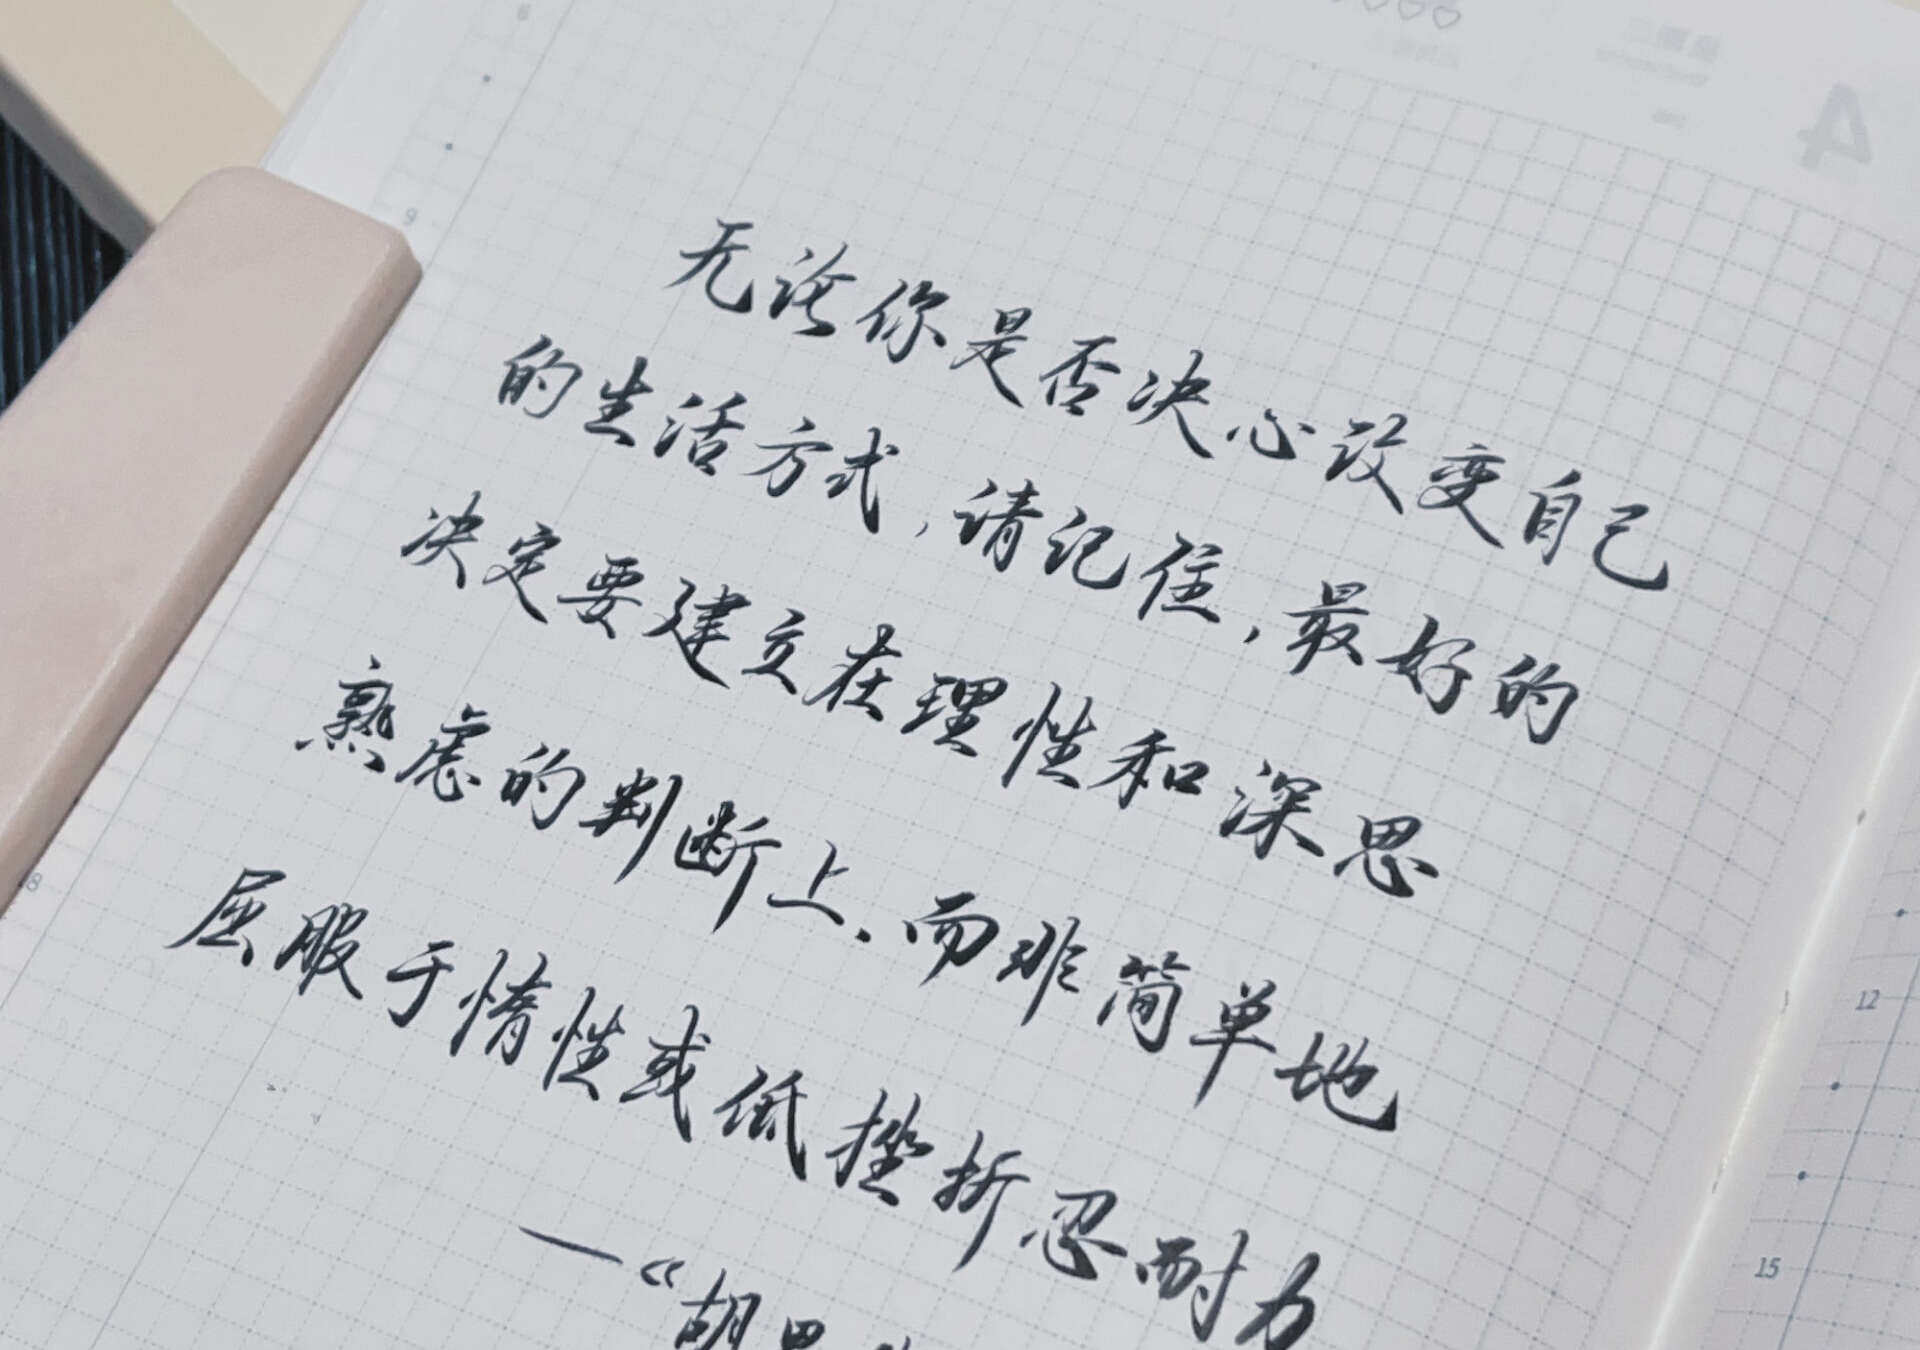 无论你是否决心改变自己
的生活方式，请记住，最好的
决定要建立在理性和深思
熟虑的判断上、而非简单地
屈服于惰性或低挫折忍耐力
——《胡思
4
6
9
18
12
15